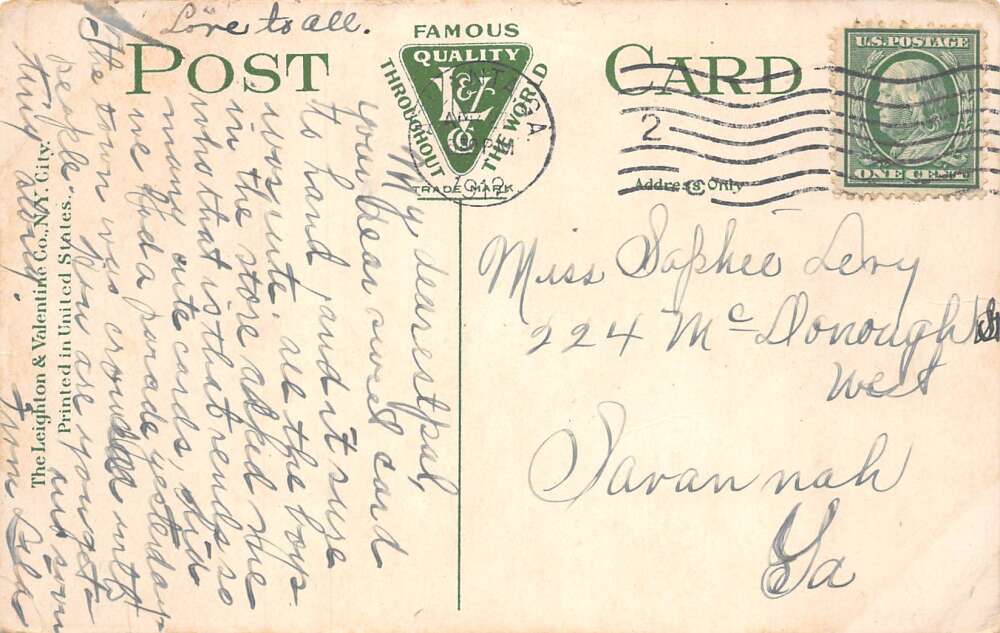 Love to all.
POST CARD
FAMOUS
QUALITY
L&V
Co
THROUGHOUT THE WORLD
TRADE MARK.
GA.
1912
2
Address Only
U.S. POSTAGE
ONE CENT
My dearest pal,
your dear sweet card
to hand and it sure
is cute. are the boys
in the store asked me
who that is that sends so
many cute cards,
we had a parade yesterday
the town was crowded with
people. How are you get
ting along.
Miss Sophee Levy
224 McDonough St
West
Savannah
Ga
The Leighton & Valentine Co., N.Y. City.
Printed in United States.